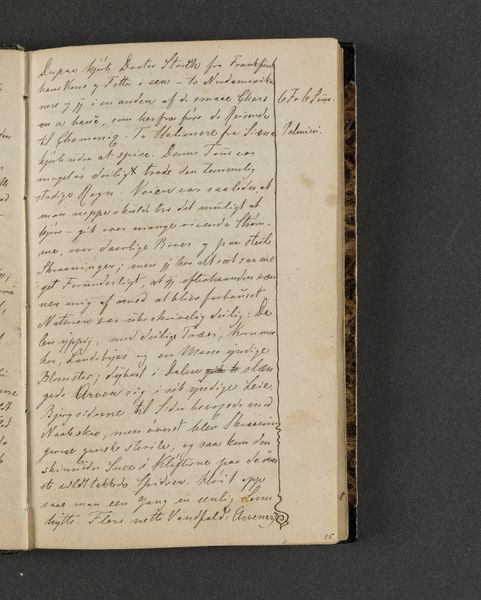 Derpaa kjörte Doctor Storck fra Frankfurt
hans Kone og Fotte i een – to Nordamerika
nere og jeg i en anden af de smaae Chars
a banc, som her fra före de Reisende
til Chamonix. To Italienere fra Siena
kjörte uden at spise. Denne Tour var
mageløs deiligt trods den temmelig
stadige Regn. Veien var saaledes at
man neppe skulde tro det muligt at
kjöre – gik over mange rivende Ström-
me, over daarlige Broer og paa steile
Skraaninger; men jeg har alt seet saa me-
get Forunderligt, at jeg efterhaanden væn-
ner mig af med at blive forbauset.
Naturen var ubeskrivelig deilig: Da-
len yppig, med deilige Træer, Korn mar-
ker, Landsbyer og en Masse yndige
Blomster; dybest i Dalen slæn-
gede Arven sig i sit yndige Leie.
Bjergsiderne til Siden bevoxede med
Naaleskov, men øverst blev Skraanin-
gerne ganske sterile, og saa kom den
skinnende Snee i Klöfterne paa de øver-
ste vildt takkede Spidser. höit oppe
saae man een Gang en eenlig Senn
hytte. Flere nette Vandfald: Arvenez
6 Fr 6 Sous.
Palmieri.
15